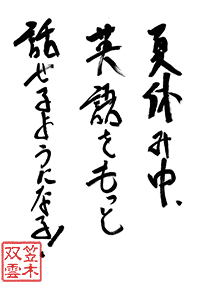 夏休み中、
英語をもっと
話せるようになる!
笠木
双雲